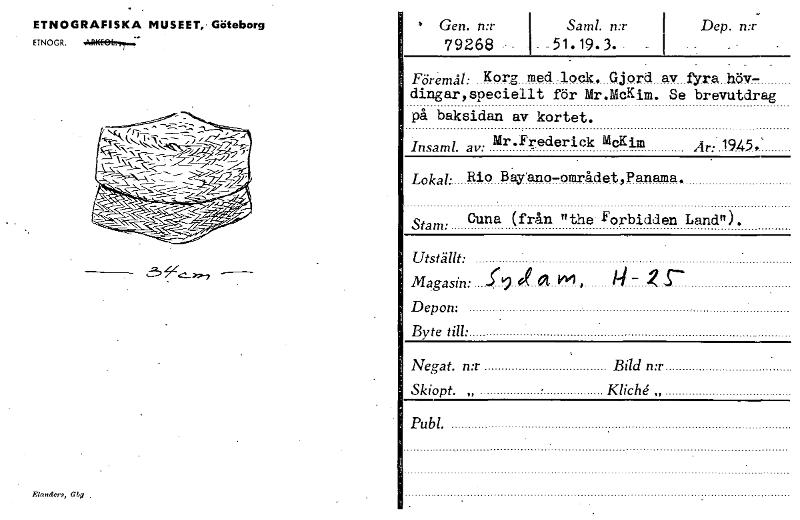 ETNOGRAFISKA MUSEET, Göteborg
ETNOGR. ARKEOL.
34 cm
Elanders, Gbg
Gen. n:r Saml. n:r Dep. n:r
79268 51.19.3.
Föremål: Korg med lock. Gjord av fyra höv-
dingar,speciellt för Mr.McKim. Se brevutdrag
på baksidan av kortet.
Insaml. av: Mr.Frederick McKim År: 1945.
Lokal: Rio Bayano-området,Panama.
Stam: Cuna (från "the Forbidden Land").
Utställt:
Magasin: Sydam, H-25
Depon:
Byte till:
Negat. n:r Bild n:r
Skiopt. „ Kliché „
Publ.